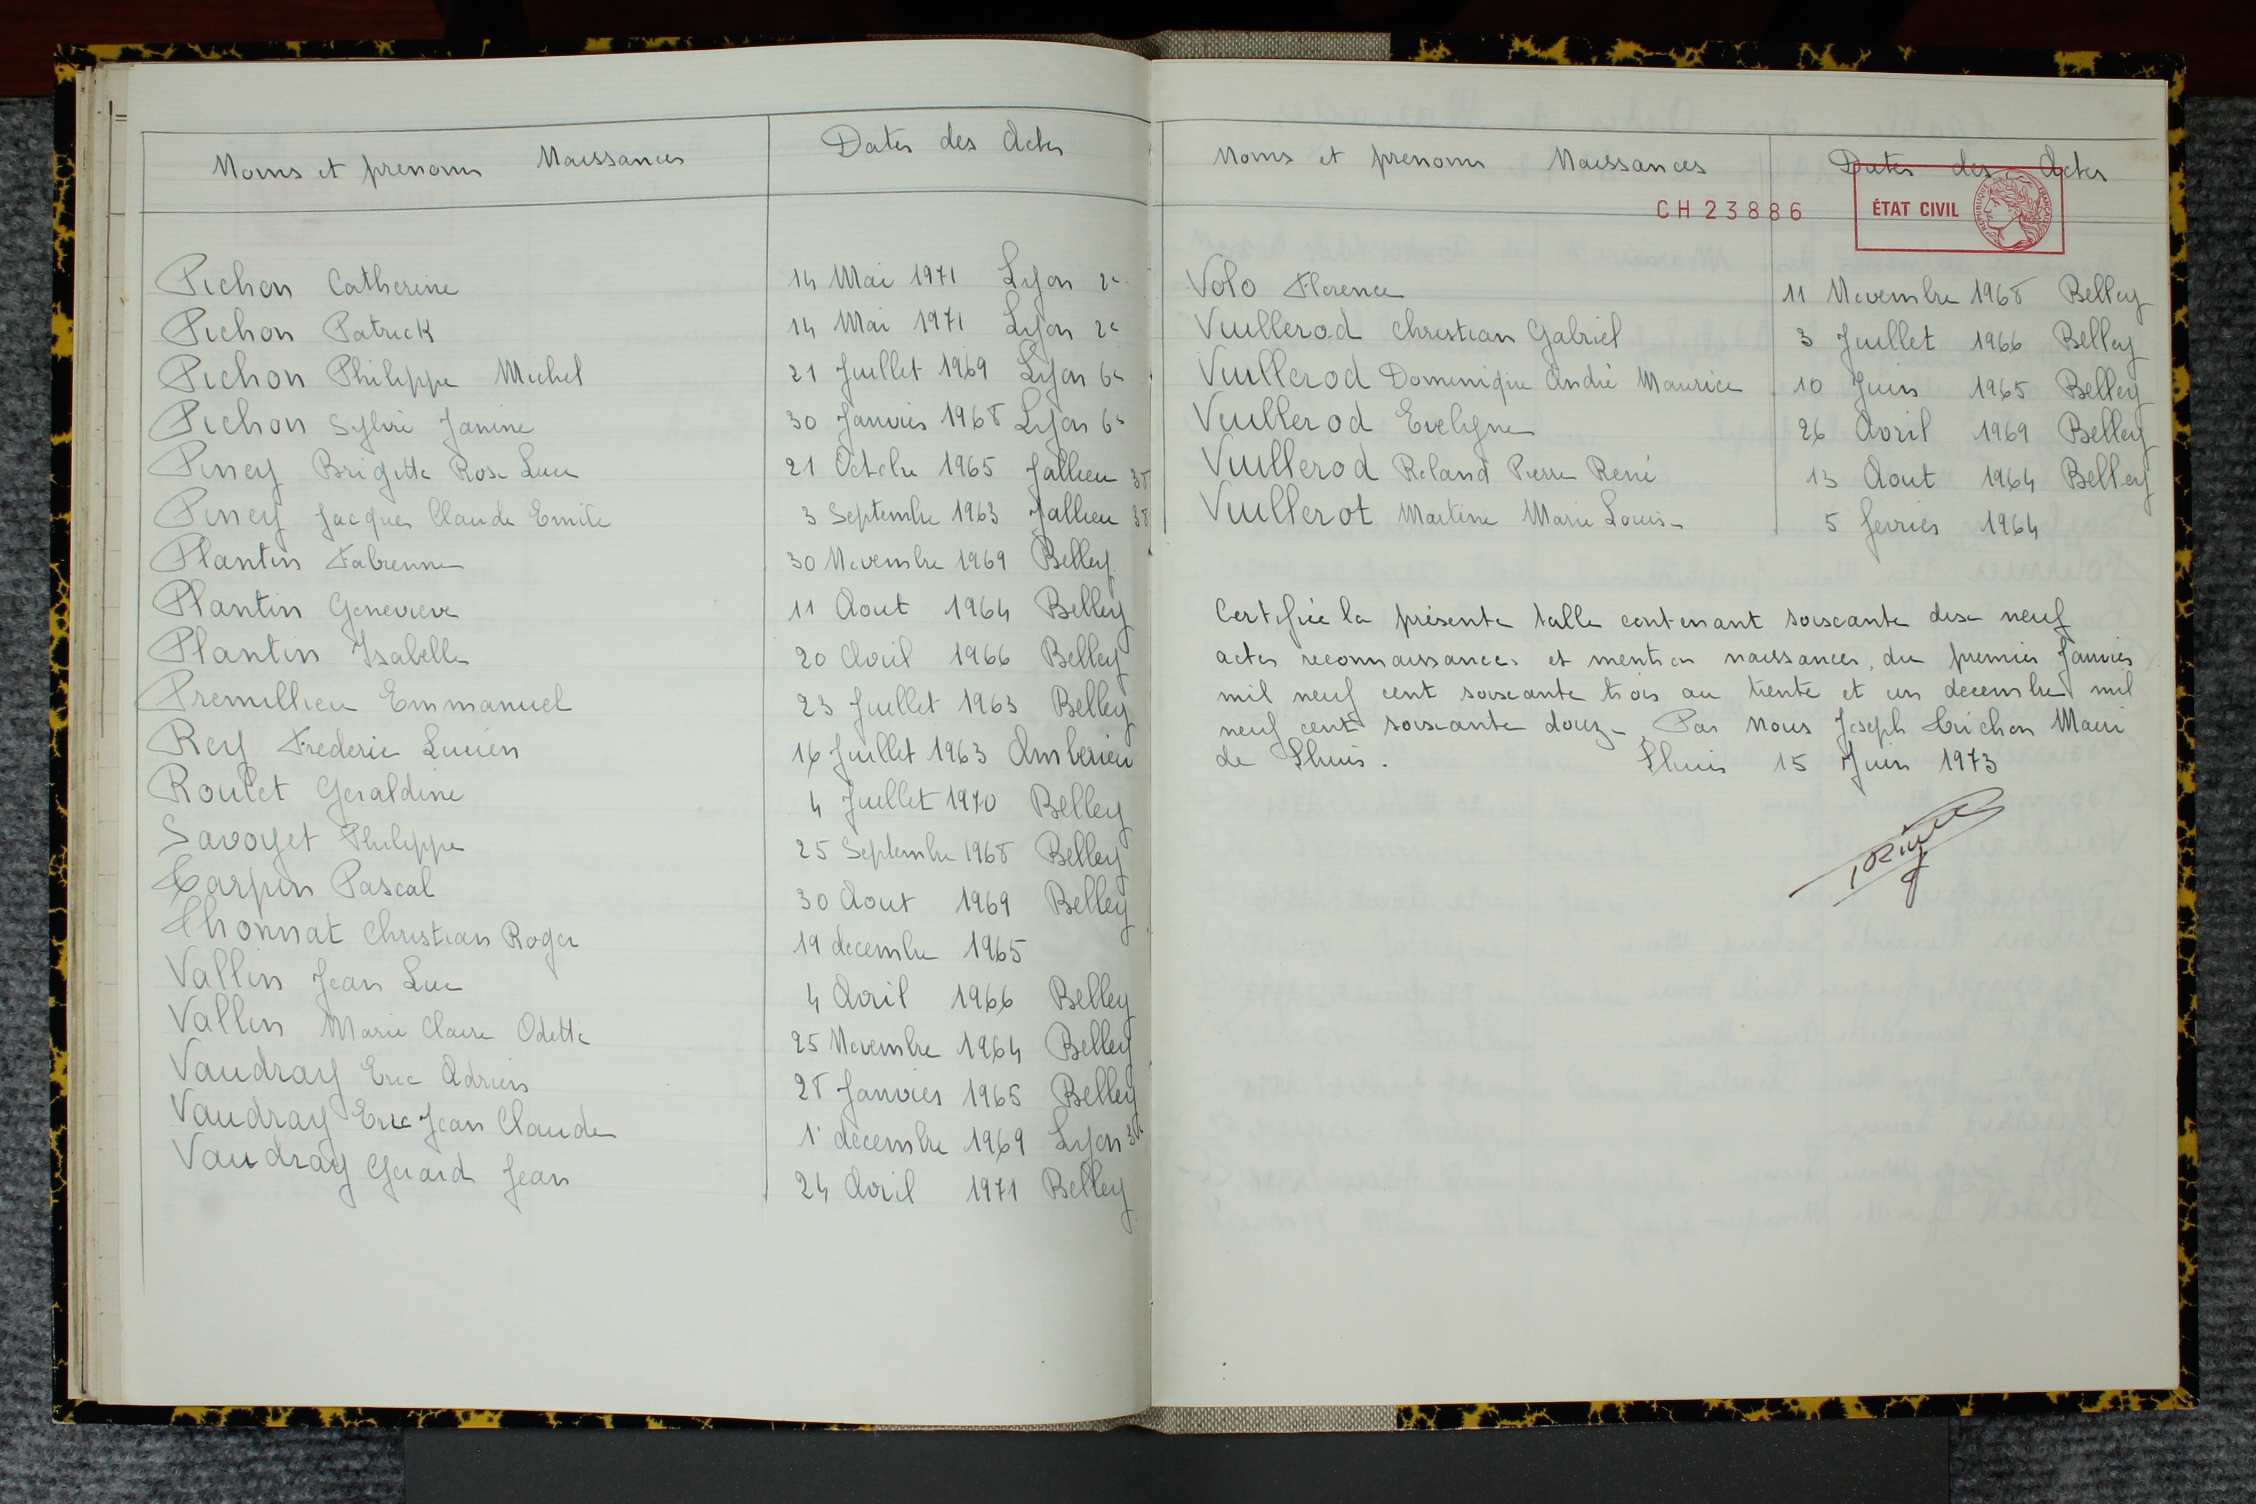 Noms et prenoms Naissances Dates des Actes
Pichon Catherine 14 Mai 1971 Lyon 2e
Pichon Patrick 14 Mai 1971 Lyon 2e
Pichon Philippe Michel 21 Juillet 1969 Lyon 6e
Pichon Sylvie Janine 30 Janvier 1968 Lyon 6e
Piney Brigitte Rose Luce 21 Octobre 1965 Jallieu 38
Piney Jacques Claude Emile 3 Septembre 1963 Jallieu 38
Plantin Fabienne 30 Novembre 1969 Belley
Plantin Genevieve 11 Aout 1964 Belley
Plantin Isabelle 20 Avril 1966 Belley
Premillieu Emmanuel 23 Juillet 1963 Belley
Rey Frederic Lucien 16 Juillet 1963 Amberieu
Roulet Geraldine 4 Juillet 1970 Belley
Savoyet Philippe 25 Septembre 1968 Belley
Tarpin Pascal 30 Aout 1969 Belley
Thonnat Christian Roger 19 decembre 1965
Vallin Jean Luc 4 Avril 1966 Belley
Vallin Marie Claire Odette 25 Novembre 1964 Belley
Vaudray Eric Adrien 28 Janvier 1965 Belley
Vaudray Eric Jean Claude 1 decembre 1969 Lyon 3e
Vaudray Gerard Jean 24 Avril 1971 Belley
Noms et prenoms Naissances Dates des Actes
CH 23886 ÉTAT CIVIL
Volo Florence 11 Novembre 1968 Belley
Vuillerod Christian Gabriel 3 Juillet 1966 Belley
Vuillerod Dominique André Maurice 10 Juin 1965 Belley
Vuillerod Evelyne 26 Avril 1969 Belley
Vuillerod Roland Pierre René 13 Aout 1964 Belley
Vuillerot Martine Marie Louise 5 fevrier 1964
Certifiée la présente table contenant soixante dix neuf
actes reconnaissances et mention naissances, du premier Janvier
mil neuf cent soixante trois au trente et un decembre mil
neuf cent soixante douze Par nous Joseph Trichon Maire
de Lhuis. Lhuis 15 Juin 1973